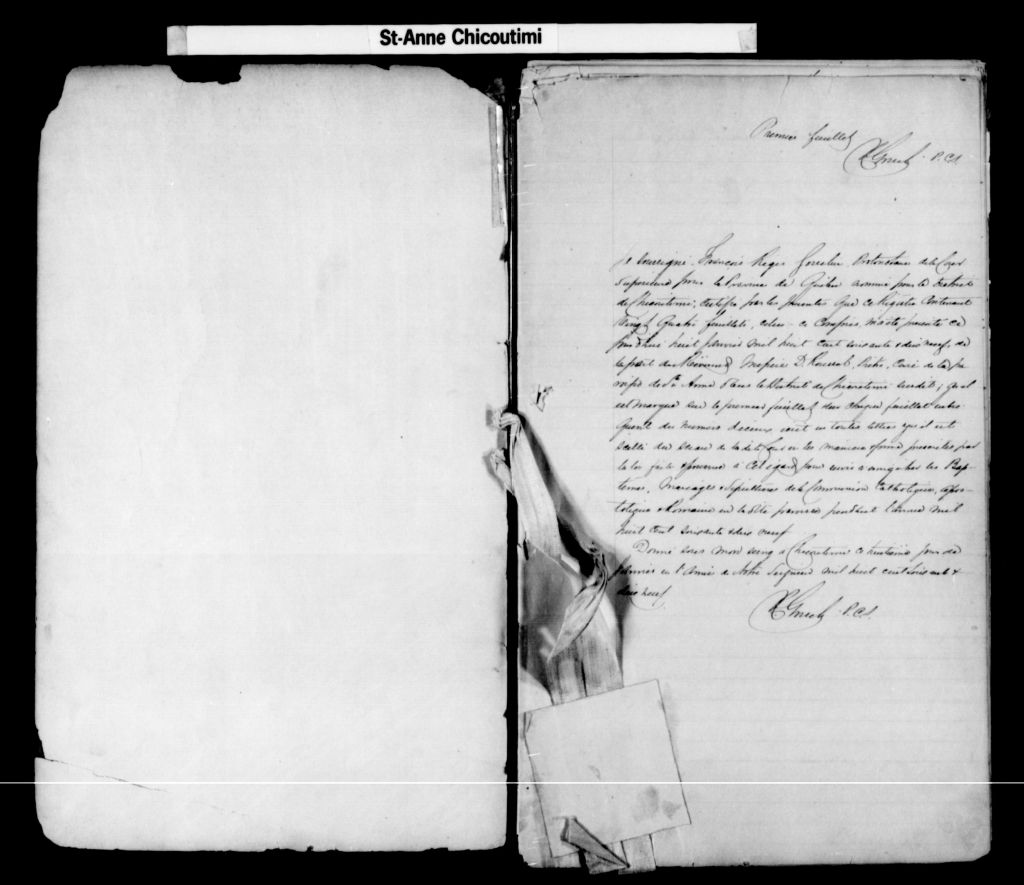 St-Anne Chicoutimi
Premier feuillet
P.C.S.
Je soussigné, François Régis Gosselin Protonotaire de la Cour
Supérieure pour la Province de Québec nommé pour le District
de Chicoutimi, certifie par les présentes que ce Régistre contenant
Vingt quatre feuillets, celui-ce compris, m'a été présenté ce
jourd'hui huit Janvier mil huit cent soixante & dix neuf, de
la part du Révérend Messire D. Roussel, Ptre, Curé de la pa
roisse de Ste Anne dans le District de Chicoutimi susdit; qu'il
est marqué sur le premier feuillet & sur chaque feuillet subsé-
quent du numéro d'icelui écrit en toutes lettres & qu'il est
scellé du sceau de la dite Cour en la manière & forme prescrites par
la loi faite & pourvue à cet égard, pour servir à enregistrer les Bap-
têmes, Mariages & Sépultures de la Communion Catholique, apos-
tolique & Romaine en la dite paroisse pendant l'année mil
huit cent soixante & dix neuf
Donné sous mon seing à Chicoutimi ce huitième jour de
Janvier en l'Année de Notre Seigneur mil huit cent soixante &
dix neuf.
P.C.S.